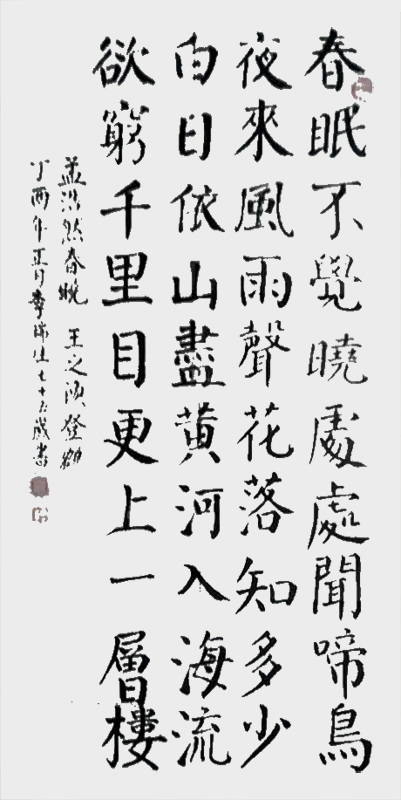 春眠不覺曉處處聞啼鳥
夜來風雨聲花落知多少
白日依山盡黄河入海流
欲窮千里目更上一層樓
孟浩然春晓 王之涣登鹳
丁酉年正月李 七十 歲書